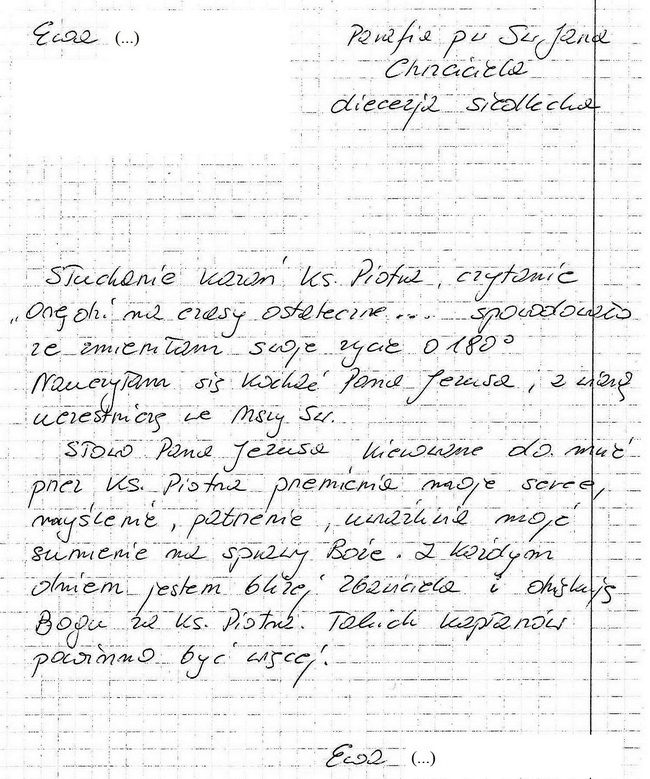 Ewa (...)
Parafia pw Św. Jana
Chrzciciela
diecezja siedlecka
Słuchanie kazań ks. Piotra, czytanie
„Orędzi na czasy ostateczne... spowodowało
że zmieniłam swoje życie o 180°
Nauczyłam się kochać Pana Jezusa, z wiarą
uczestniczę we Mszy Św.
Słowo Pana Jezusa kierowane do mnie
przez ks. Piotra przemienia moje serce,
myślenie, patrzenie, uwrażliwia moje
sumienie na sprawy Boże. Z każdym
dniem jestem bliżej Zbawiciela i dziękuję
Bogu za ks. Piotra. Takich kapłanów
powinno być więcej.
Ewa (...)